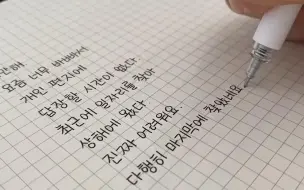 간해
요즘 너무 바빠서
개인 편지에
답장할 시간이 없다
최근에 일자리를 찾아
상해에 왔다
진짜 어려워요.
다행히 마지막에 찾았네요